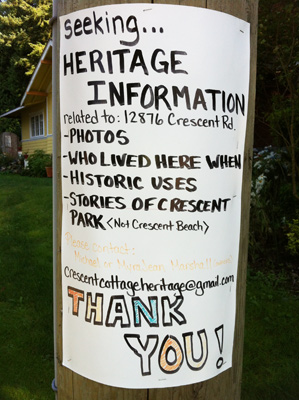 seeking...
HERITAGE
INFORMATION
related to: 12876 Crescent Rd.
-PHOTOS
-WHO LIVED HERE WHEN
-HISTORIC USES
-STORIES OF CRESCENT
PARK <NOT CRESCENT BEACH>
Please contact:
Michael or
crescentcottageheritage@gmail.com
THANK
YOU!